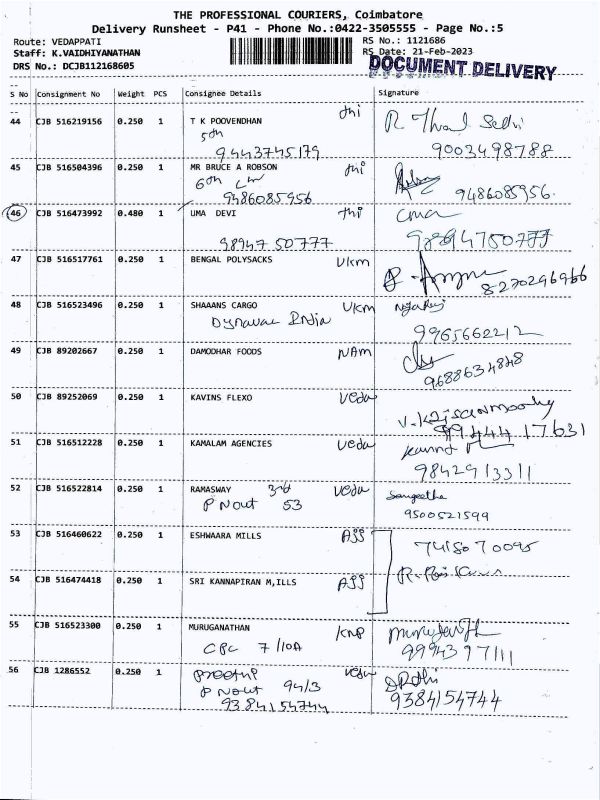 THE PROFESSIONAL COURIERS, Coimbatore
Delivery Runsheet - P41 - Phone No.:0422-3505555 - Page No.:5
Route: VEDAPPATI
RS No.: 1121686
Staff: K.VAIDHIYANATHAN
RS Date: 21-Feb-2023
DRS No.: DCJB112168605
DOCUMENT DELIVERY
S No Consignment No Weight PCS Consignee Details Signature
44 CJB 516219156 0.250 1 T K POOVENDHAN
5th
9443745179
9003498788
45 CJB 516504396 0.250 1 MR BRUCE A ROBSON
6th
9486085956
9486085956.
46 CJB 516473992 0.480 1 UMA DEVI
98947 50777
9894750777
47 CJB 516517761 0.250 1 BENGAL POLYSACKS VKM
8270296966
48 CJB 516523496 0.250 1 SHAAANS CARGO VKM
India
9965662212
49 CJB 89202667 0.250 1 DAMODHAR FOODS NAM
9688634848
50 CJB 89252069 0.250 1 KAVINS FLEXO Veda
9944417631
51 CJB 516512228 0.250 1 KAMALAM AGENCIES Veda
9842913311
52 CJB 516522814 0.250 1 RAMASWAY 3rd Veda Sangeetha
P Nout 53
9500521599
53 CJB 516460622 0.250 1 ESHWAARA MILLS ASS
54 CJB 516474418 0.250 1 SRI KANNAPIRAN M,ILLS ASS
55 CJB 516523300 0.250 1 MURUGANATHAN KNP
CPC 7/10A
9994397111
56 CJB 1286552 0.250 1 Veda
P Nout 94/3
9384154744
9384154744